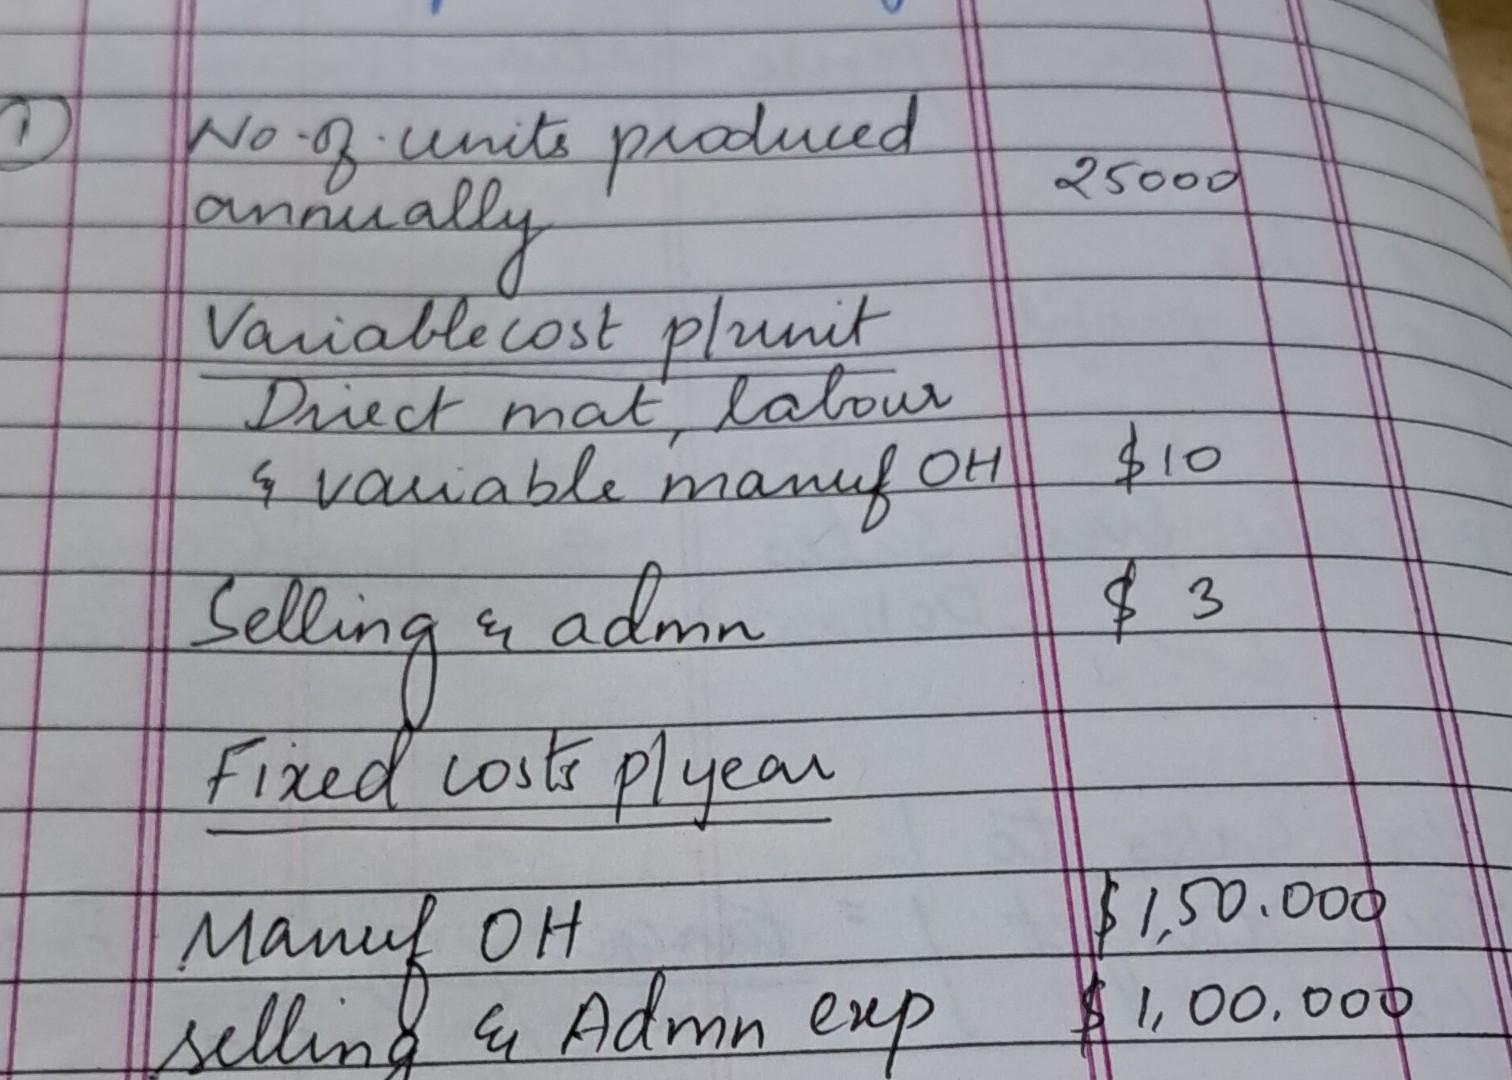 1
No. of. units produced
annually 25000
Variable cost p/unit
Direct mat, labour
& variable manuf OH $10
Selling & admn $ 3
Fixed costs p/year
Manuf OH $1,50.000
selling & Admn exp $1,00.000